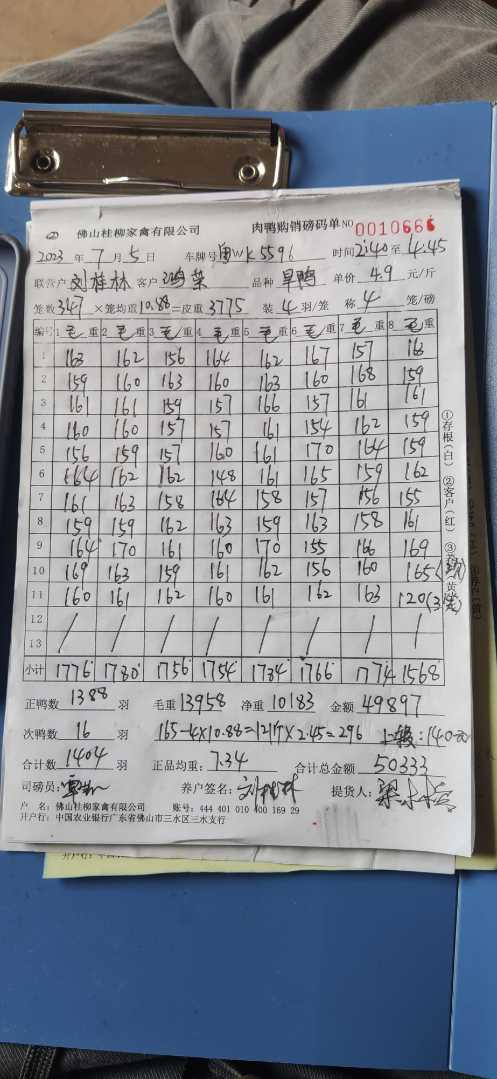 佛山桂柳家禽有限公司 肉鸭购销磅码单 NO 0010666
2023 年 7 月 5 日 车牌号 WK5596 时间 2:40 至 4:45
联营户 刘桂林 客户 鸿荣 品种 旱鸭 单价 4.9 元/斤
笼数 347 ×笼均重 10.88 =皮重 3775 装 4 羽/笼 称 4 笼/磅
编号 1 毛 重 2 毛 重 3 毛 重 4 毛 重 5 毛 重 6 毛 重 7 毛 重 8 毛 重
1 163 162 156 164 162 167 157 163
2 159 160 163 160 163 160 168 159
3 161 161 159 157 166 157 161 161
4 160 160 157 157 161 154 162 159
5 156 159 157 160 161 170 164 159
6 164 162 162 148 161 165 159 162
7 161 163 158 164 158 157 156 155
8 159 159 162 163 159 163 158 161
9 164 170 161 160 170 155 166 169
10 169 163 159 161 162 156 160 165
11 160 161 162 160 161 162 163 120(3笼)
12 / / / / / / / /
13 / / / / / / / /
小计 1776 1780 1756 1754 1784 1766 1774 1568
①存根(白) ②客户(红) ③
正鸭数 1388 羽 毛重 13958 净重 10183 金额 49897
次鸭数 16 羽 165-4×10.88=121斤×2.45=296 :140元
合计数 1404 羽 正品均重: 7.34 合计总金额 50333
司磅员: 养户签名: 刘桂林 提货人:
户 名: 佛山桂柳家禽有限公司 账号: 444 401 010 400 169 29
开户行: 中国农业银行广东省佛山市三水区三水支行